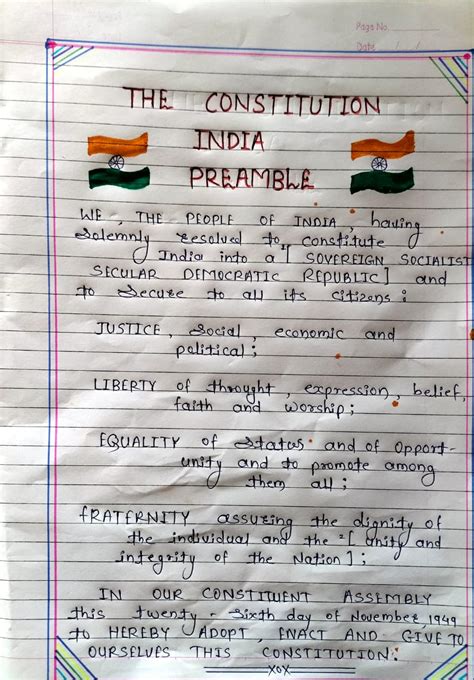 Page No.
Date / /
THE CONSTITUTION
INDIA
PREAMBLE
WE, THE PEOPLE OF INDIA, having
solemnly resolved to constitute
India into a 1[ SOVEREIGN SOCIALIST
SECULAR DEMOCRATIC REPUBLIC] and
to secure to all its citizens :
JUSTICE, social, economic and
political;
LIBERTY of throught, expression, belief,
faith and worship;
EQUALITY of status and of opport-
unity and to promote among
them all;
fRATERNITY assuring the dignity of
the individual and the 2[ unity and
integrity of the Nation];
IN OUR CONSTITUENT ASSEMBLY
this twenty-sixth day of November, 1949
to HEREBY ADOPT, ENACT AND GIVE TO
OURSELVES THIS CONSTITUTION.
xox